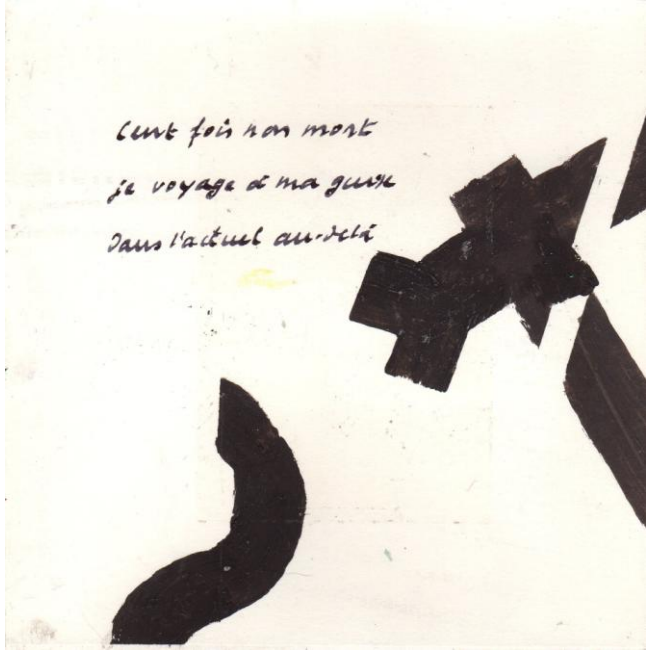 Cent fois non mort
je voyage à ma guise
Dans l'actuel au-delà